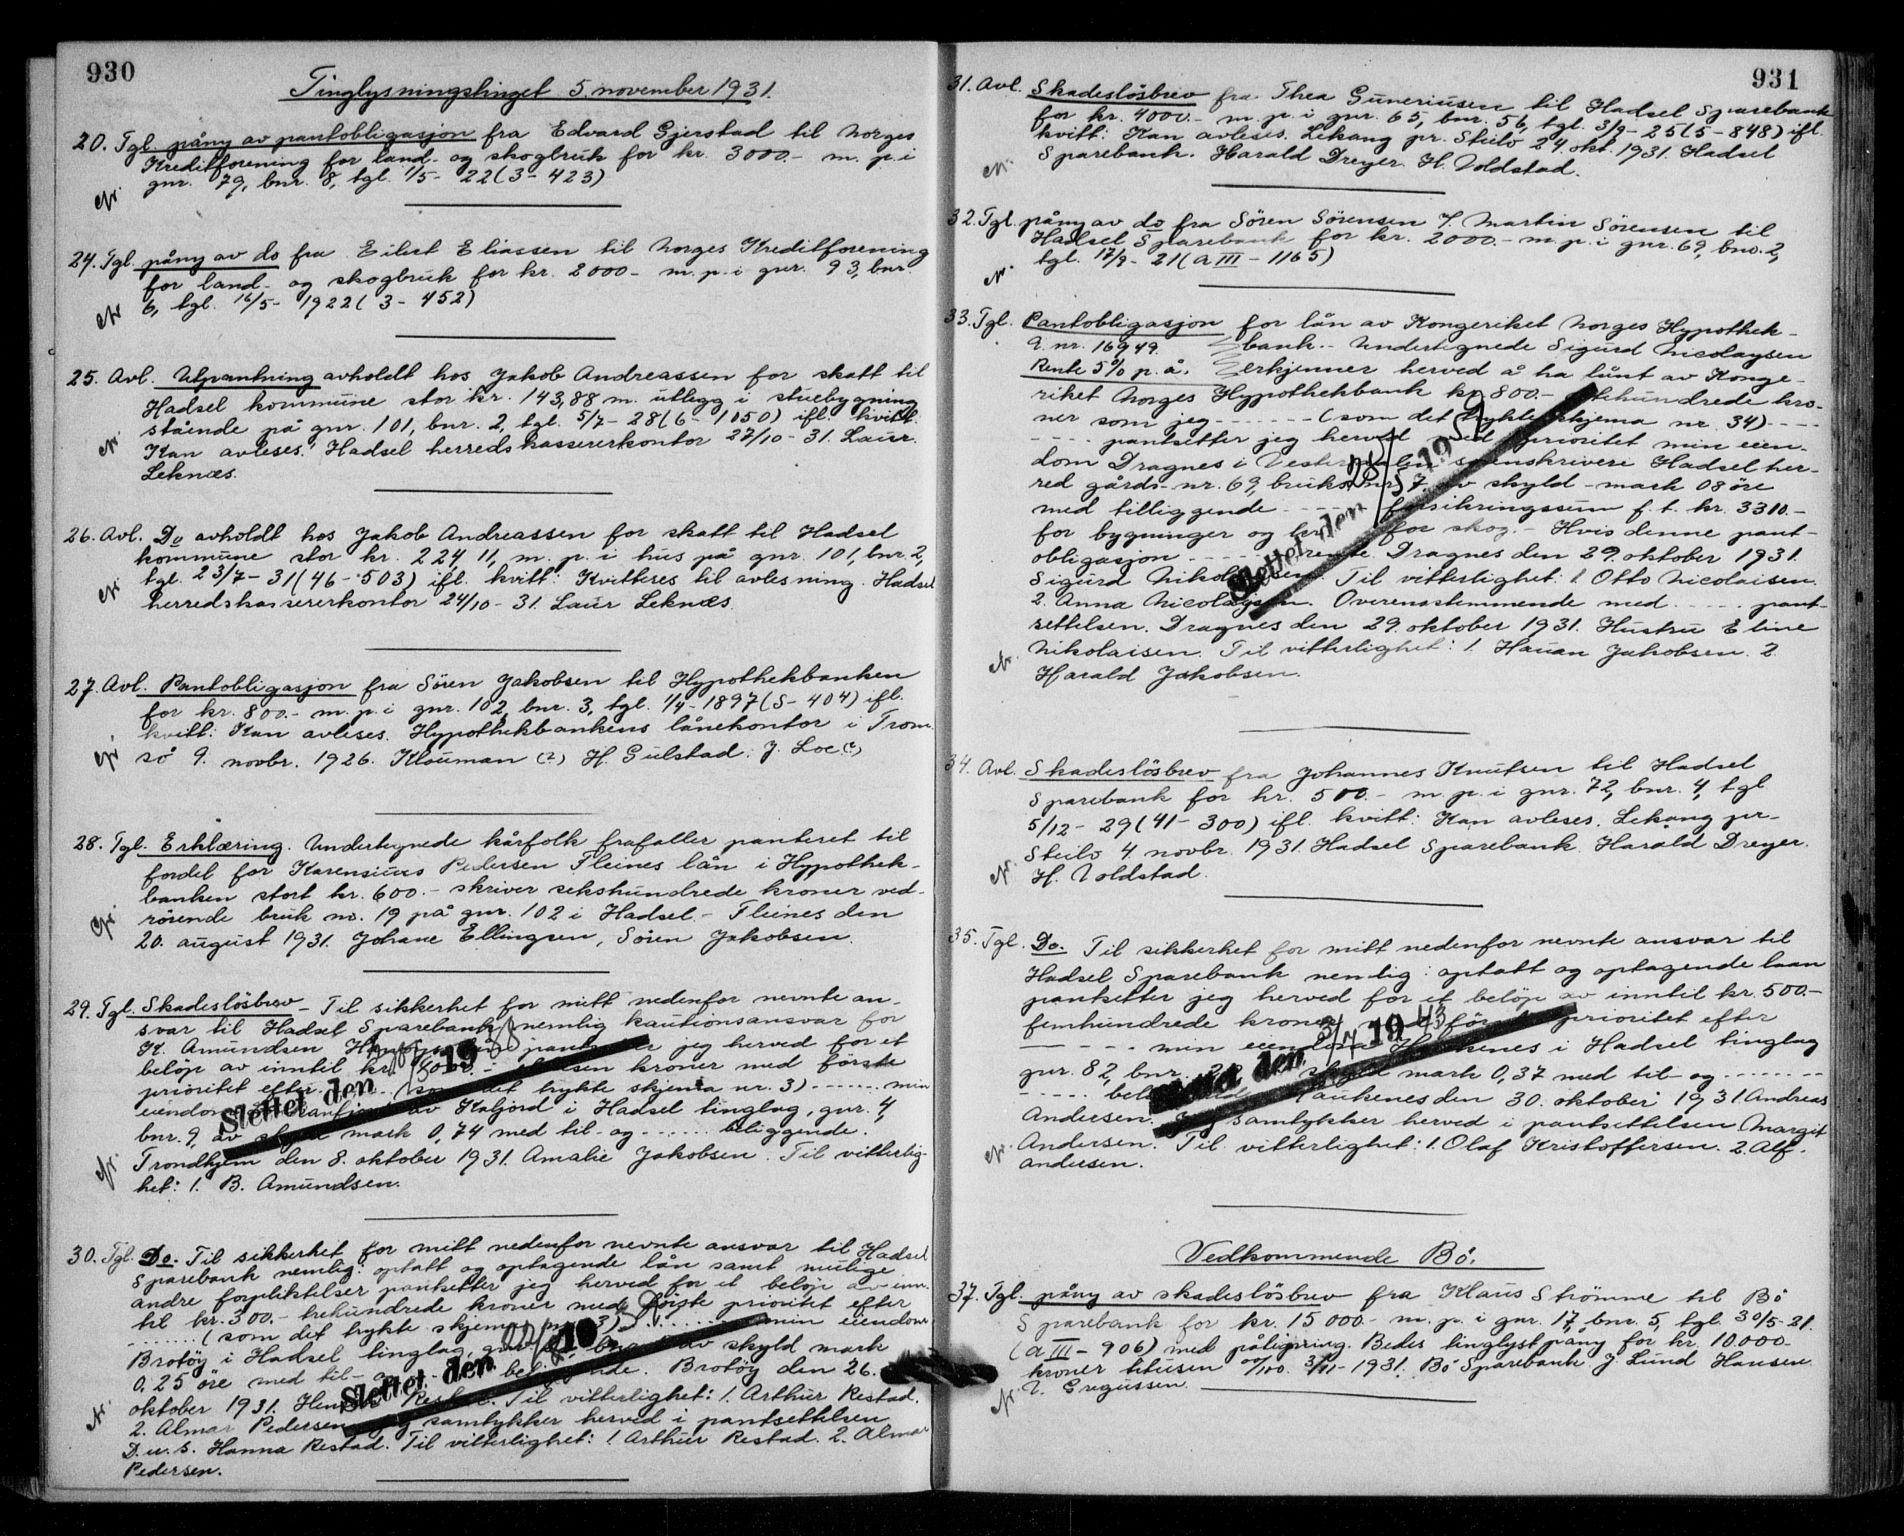 930
Tinglysningstinget 5. november 1931.
20. Tgl. påny av pantobligasjon fra Edvard Gjerstad til Norges
Kreditforening for land- og skogbruk for kr. 3000.- m. p. i
gnr. 79, bnr. 8, tgl. 1/5- 22 (3-423)
24. Tgl. påny av do fra Eilert Eliassen til Norges Kreditforening
for land- og skogbruk for kr. 2000- m. p. i gnr. 93, bnr.
6, tgl. 16/5- 1922 (3-452)
25. Avl. Utpantning avholdt hos Jakob Andreassen for skatt til
Hadsel kommune stor kr. 143,88 m. utlegg i stuebygning
stående på gnr. 101, bnr. 2, tgl. 5/7- 28 (6-1050) ifl. kvitt.
Kan avleses. Hadsel herredskassererkontor 27/10- 31. Laur.
Leknæs.
26. Avl. Do avholdt hos Jakob Andreassen for skatt til Hadsel
kommune stor kr. 224,11, m. p. i hus på gnr. 101, bnr. 2,
tgl. 23/7- 31 (46-503) ifl. kvitt: Kvitteres til avlesning. Hadsel
herredskassererkontor 24/10- 31. Laur Leknæs.
27. Avl. Pantobligasjon fra Søren Jakobsen til Hypothekbanken
for kr. 800.- m. p. i gnr. 102, bnr. 3, tgl. 1/4- 1897 (S-404) ifl.
kvitt: Kan avleses. Hypothekbankens lånekontor i Trom
sø 9. novbr. 1926. Klouman (?) H. Gulstad. J. Loe (?)
28. Tgl. Erklæring. Undertegnede kårfolk frafaller panteret til
fordel for Karensius Pedersen Fleines lån i Hypothek-
banken stort kr. 600.- skriver sekshundrede kroner ved-
rørende bruk nr. 19 på gnr. 102 i Hadsel.- Fleines den
20. august 1931. Johane Ellingsen, Søren Jakobsen.
29. Tgl. Skadesløsbrev - Til sikkerhet for mitt nedenfor nevnte an-
svar til Hadsel Sparebank nemlig kautionsansvar for
K. Amundsen jeg herved for et
beløp av inntil kr. kroner med første
prioritet efter (som det trykte skjema nr. 3) ------ min
eiendom av Kaljord i Hadsel tinglag, gnr. 4,
bnr. 9, av skyld mark 0,74 med til- og ------ beliggende.
Trondhjem den 8. oktober 1931. Amalie Jakobsen. Til vitterlig-
het: 1. B. Amundsen.
Slettet den 19
30. Tgl. Do. Til sikkerhet for mitt nedenfor nevnte ansvar til Hadsel
Sparebank nemlig: optatt og optagende lån samt mulige
andre forpliktelser pantsetter jeg herved for et beløp av inn-
til kr. 300.- trehundrede kroner med første prioritet efter
------ (som det trykte skjema nr. 3) ------ min eiendom
Brotøy i Hadsel tinglag, av skyld mark
0,25 øre med til- og beliggende. Brotøy den 26.
oktober 1931. Restad. Til vitterlighet: 1. Arthur Restad.
2. Almar Pedersen. Jeg samtykker herved i pantsettelsen
D. u. s. Hanna Restad. Til vitterlighet: 1. Arthur Restad. 2. Almar
Pedersen.
Slettet den 19
931
31. Avl. Skadesløsbrev fra Thea Guneriusen til Hadsel Sparebank
for kr. 4000.- m. p. i gnr. 65, bnr. 56, tgl. 3/9- 25 (5-848) ifl.
kvitt: Kan avleses. Lekang pr. Steilo 24. okt. 1931. Hadsel
Sparebank. Harald Dreyer. H. Voldstad.
32. Tgl. påny av do fra Søren Sørensen f. Martin Sørensen til
Hadsel Sparebank for kr. 2000.- m. p. i gnr. 69, bnr. 2,
tgl. 17/9- 21 (a III - 1165)
33. Tgl. Pantobligasjon for lån av Kongeriket Norges Hypothek-
L. nr. 16949. bank.- Undertegnede Sigurd Nicolaysen
Rente 5% p. å. erkjenner herved å ha lånt av Konge-
riket Norges Hypothekbank kr. 800.- ottehundrede kro-
ner som jeg ------ (som det trykte skjema nr. 34) ----
---- pantsetter jeg herved med prioritet min eien-
dom Dragnes i Vesterålen sorenskriveri Hadsel her-
red gårds-nr. 69, bruks-nr. 7, av skyld-mark 08 øre
med tilliggende forsikringssum f. t. kr. 3310.-
for bygninger og kr. for skog.- Hvis denne pant-
obligasjon Dragnes den 29. oktober 1931.
Sigurd Nikolaysen. Til vitterlighet: 1. Otto Nicolaisen.
2. Anna Nicolaysen. Overensstemmende med ------ pant-
settelsen. Dragnes den 29. oktober 1931. Hustru Eline
Nikolaisen. Til vitterlighet: 1. Hauan Jakobsen. 2.
Harald Jakobsen.
Slettet den 19
34. Avl. Skadesløsbrev fra Johannes Knutsen til Hadsel
Sparebank for kr. 500.- m. p. i gnr. 72, bnr. 4, tgl
5/12- 29 (41-300) ifl. kvitt: Kan avleses. Lekang pr.
Steilo 4. novbr. 1931. Hadsel Sparebank. Harald Dreyer.
H. Voldstad.
35. Tgl. Do. Til sikkerhet for mitt nedenfor nevnte ansvar til
Hadsel Sparebank nemlig: optatt og optagende laan
pantsetter jeg herved for et beløp av inntil kr. 500.-
femhundrede kroner med første prioritet efter
------ min eiendom i Hadsel tinglag
gnr. 82, bnr. skyld mark 0,37 med til- og ------
------ den 30. oktober 1931 Andreas
Andersen. Jeg samtykker herved i pantsettelsen Margit
Andersen. Til vitterlighet: 1. Olaf Kristoffersen. 2. Alf
Andersen.
Slettet den 3/7 1943
Vedkommende Bø.
37. Tgl. påny av skadesløsbrev fra Klaus Strømme til Bø
Sparebank for kr. 15000.- m. p. i gnr. 17, bnr. 5, tgl. 30/5- 21.
(a III - 906) med påtegning. Bedes tinglyst påny for kr. 10.000.-
kroner titusen 1931. Bø Sparebank. J. Lund Hansen.
Gregussen.